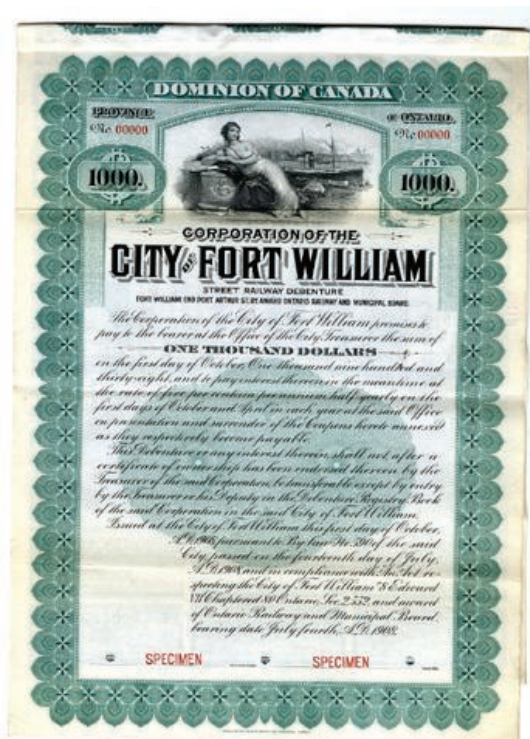 DOMINION OF CANADA
PROVINCE OF ONTARIO.
No. 00000 No. 00000
1000. 1000.
CORPORATION OF THE
CITY OF FORT WILLIAM
STREET RAILWAY DEBENTURE
FORT WILLIAM AND PORT ARTHUR ST. RY. AWARD ONTARIO RAILWAY AND MUNICIPAL BOARD
The Corporation of the City of Fort William promises to
pay to the bearer at the Office of the City Treasurer the sum of
ONE THOUSAND DOLLARS
on the first day of October, One thousand nine hundred and
thirty-eight, and to pay interest thereon in the meantime at
the rate of five per centum per annum, half yearly on the
first days of October and April in each year at the said Office
on presentation and surrender of the Coupons hereto annexed
as they respectively become payable.
This Debenture or any interest therein, shall not, after a
certificate of ownership has been endorsed thereon by the
Treasurer of the said Corporation, be transferable except by entry
by the Treasurer or his Deputy in the Debenture Registry Book
of the said Corporation in the said City of Fort William.
Issued at the City of Fort William this first day of October,
A.D. 1908, pursuant to By-law No. of the said
City, passed on the fourteenth day of July,
A.D. 1908, and in compliance with An Act re-
specting the City of Fort William "8 Edward
VII Chaptered Ontario, Sec. and award
of Ontario Railway and Municipal Board,
bearing date July fourth, A.D. 1908.
SPECIMEN SPECIMEN